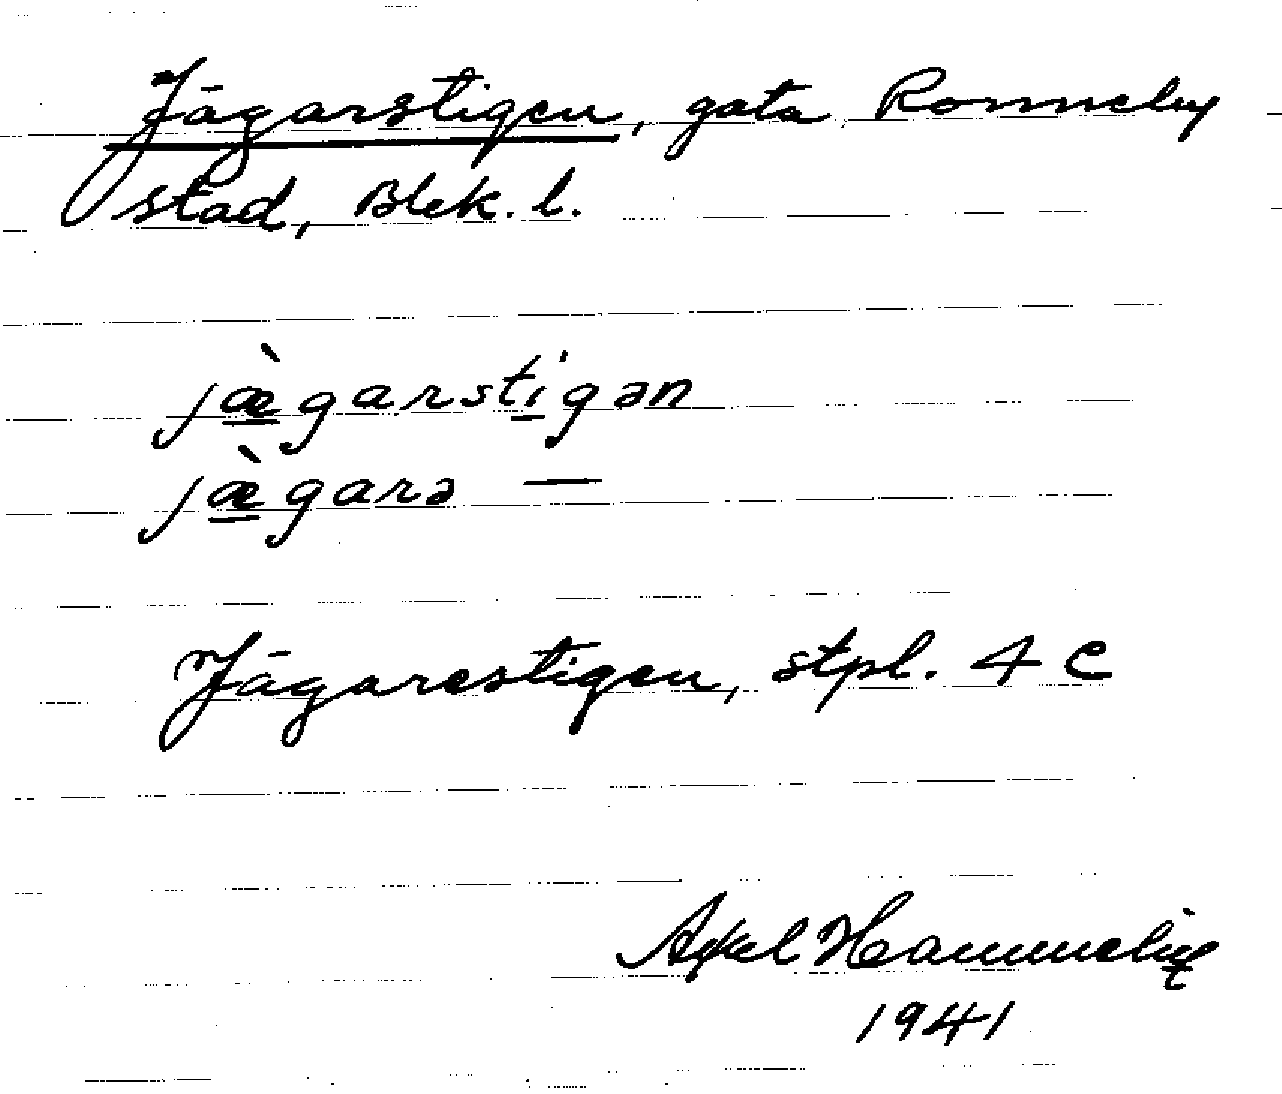 Jägarstigen, gata Ronneby
stad, Blek. l.
jæ̀garstigən
jæ̀garə —
Jägarestigen, stpl. 4 C
Axel
1941